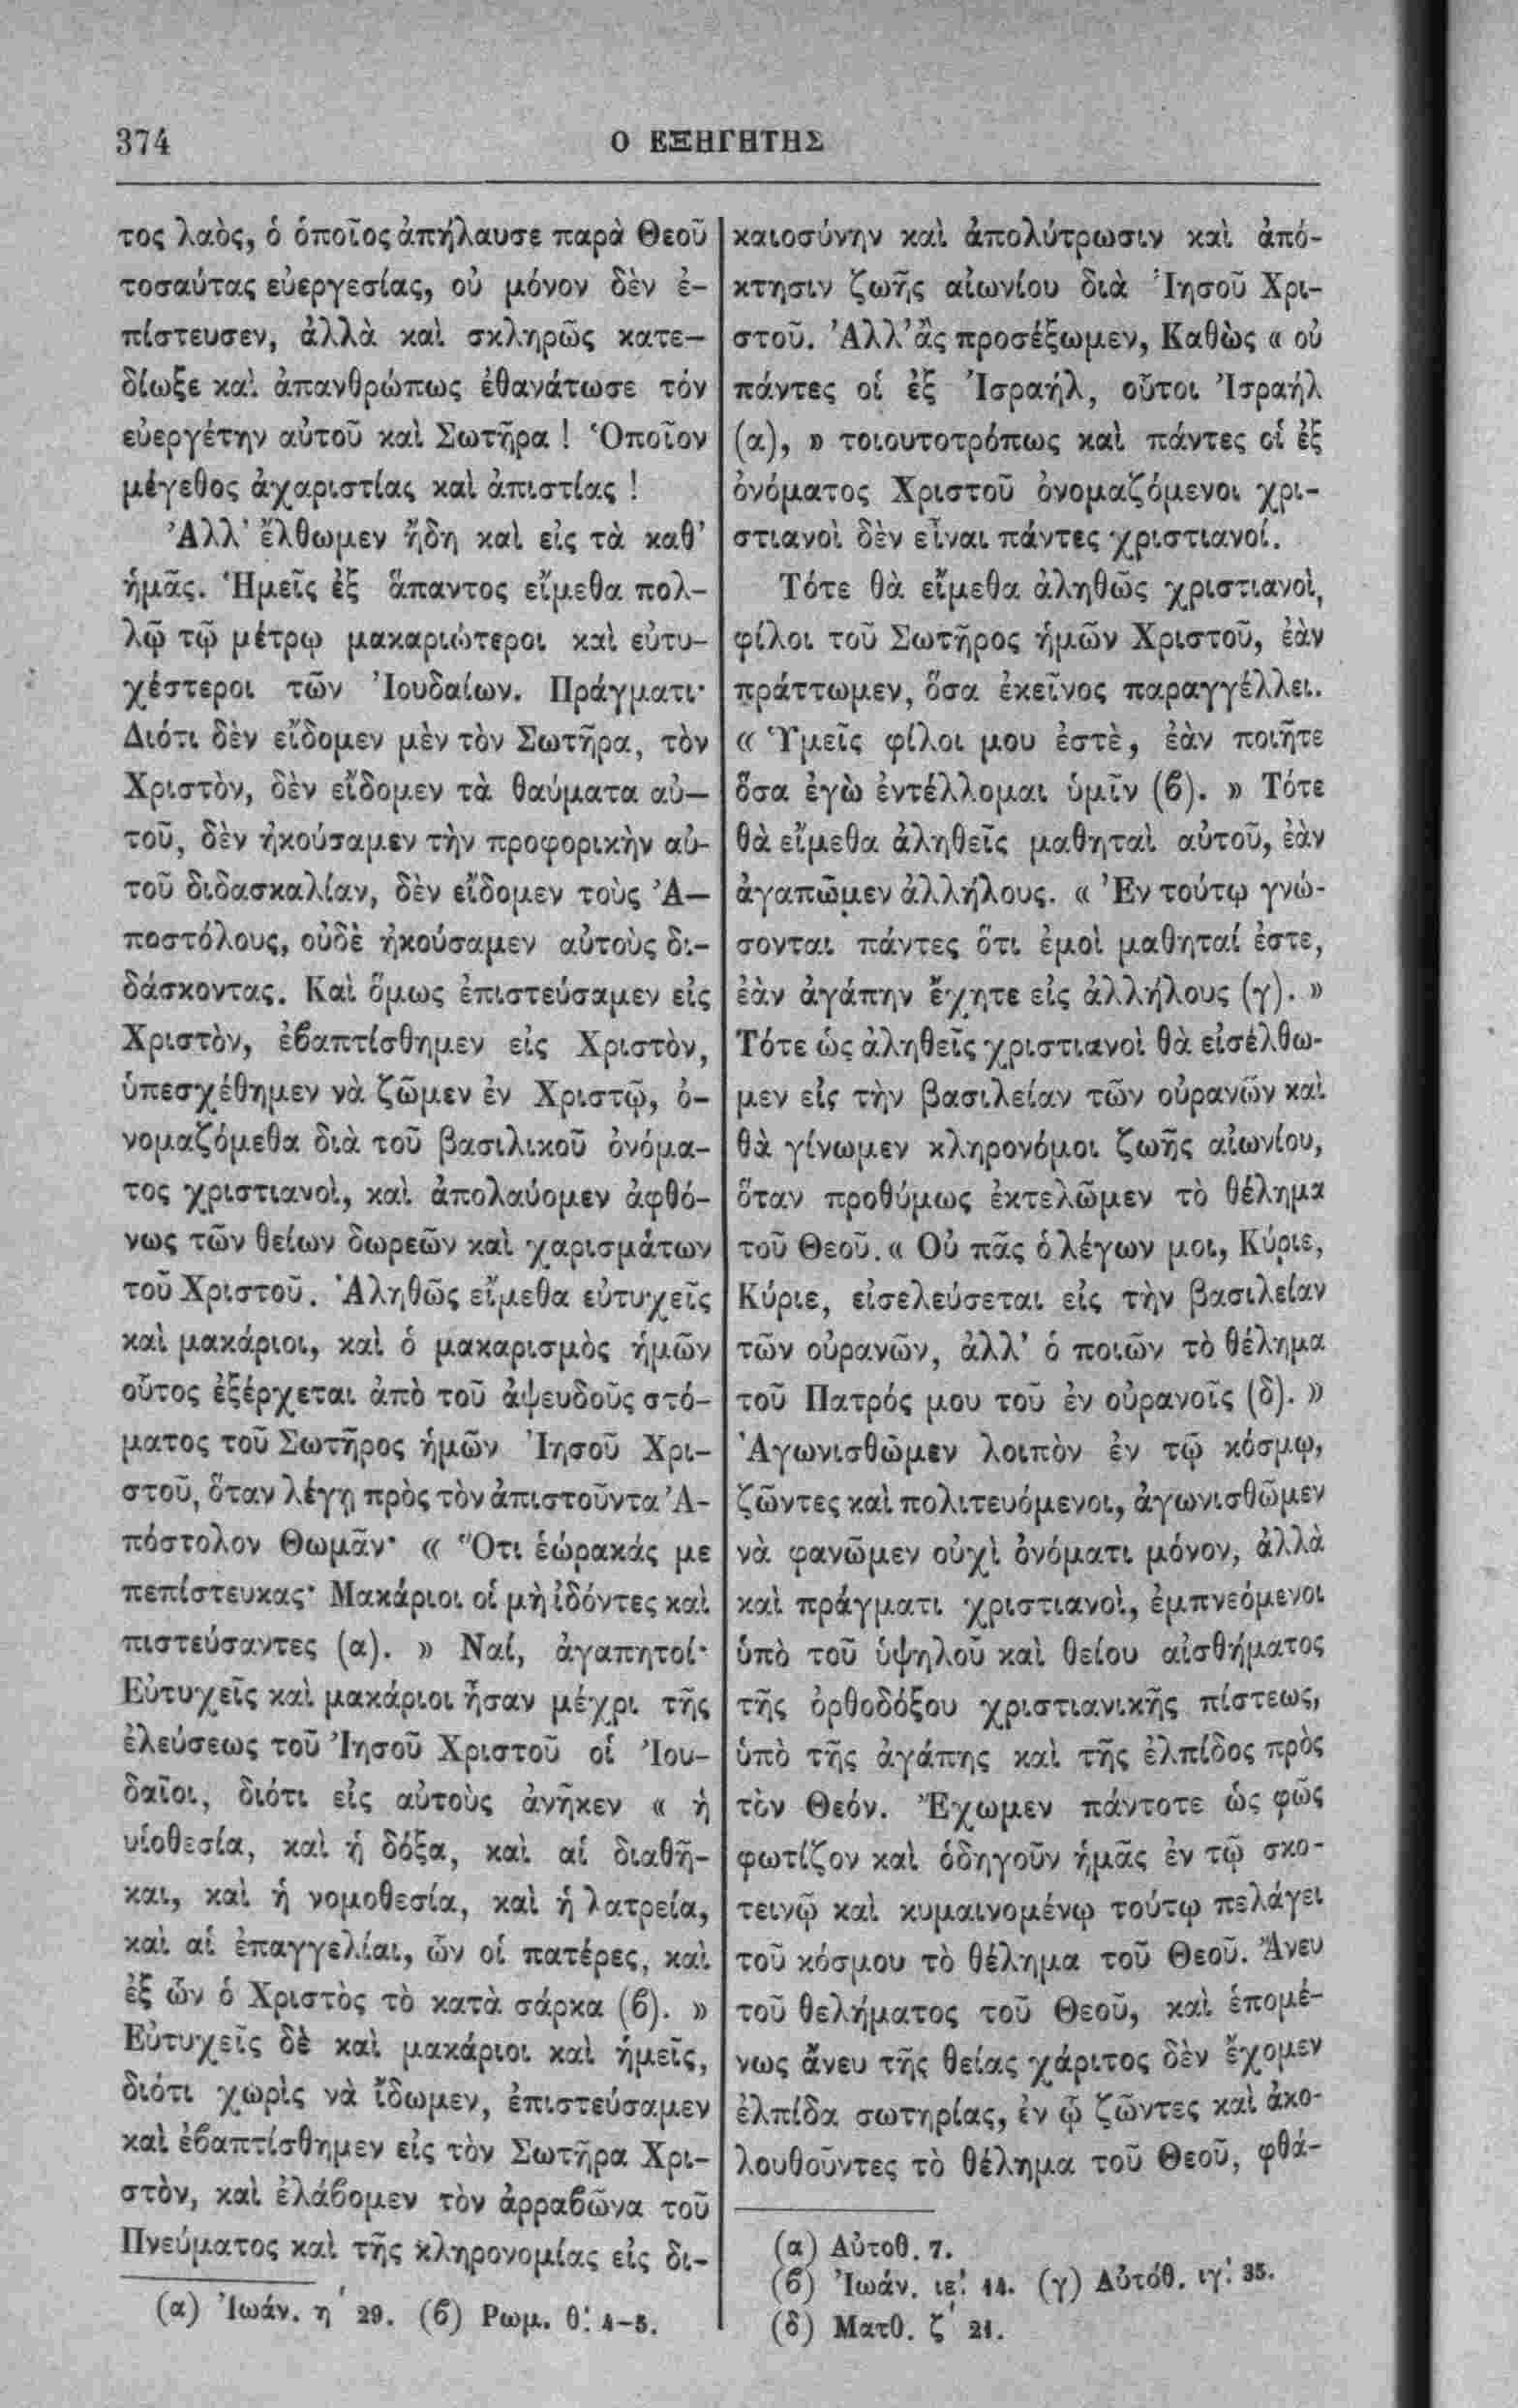 374
Ο ΕΞΗΓΗΤΗΣ
τος λαὸς, ὁ ὁποῖος ἀπήλαυσε παρὰ Θεοῦ
τοσαύτας εὐεργεσίας, οὐ μόνον δὲν ἐ-
πίστευσεν, ἀλλὰ καὶ σκληρῶς κατε-
δίωξε καὶ ἀπανθρώπως ἐθανάτωσε τόν
εὐεργέτην αὐτοῦ καὶ Σωτῆρα ! Ὁποῖον
μέγεθος ἀχαριστίας καὶ ἀπιστίας !
Ἀλλ' ἔλθωμεν ἤδη καὶ εἰς τὰ καθ'
ἡμᾶς. Ἡμεῖς ἐξ ἅπαντος εἴμεθα πολ-
λῷ τῷ μέτρῳ μακαριώτεροι καὶ εὐτυ-
χέστεροι τῶν Ἰουδαίων. Πράγματι·
Διότι δὲν εἴδομεν μὲν τὸν Σωτῆρα, τὸν
Χριστὸν, δὲν εἴδομεν τὰ θαύματα αὐ-
τοῦ, δὲν ἠκούσαμεν τὴν προφορικὴν αὐ-
τοῦ διδασκαλίαν, δὲν εἴδομεν τοὺς Ἀ-
ποστόλους, οὐδὲ ἠκούσαμεν αὐτοὺς δι-
δάσκοντας. Καὶ ὅμως ἐπιστεύσαμεν εἰς
Χριστὸν, ἐβαπτίσθημεν εἰς Χριστὸν,
ὑπεσχέθημεν νὰ ζῶμεν ἐν Χριστῷ, ὀ-
νομαζόμεθα διὰ τοῦ βασιλικοῦ ὀνόμα-
τος χριστιανοὶ, καὶ ἀπολαύομεν ἀφθό-
νως τῶν θείων δωρεῶν καὶ χαρισμάτων
τοῦ Χριστοῦ. Ἀληθῶς εἴμεθα εὐτυχεῖς
καὶ μακάριοι, καὶ ὁ μακαρισμὸς ἡμῶν
οὗτος ἐξέρχεται ἀπὸ τοῦ ἀψευδοῦς στό-
ματος τοῦ Σωτῆρος ἡμῶν Ἰησοῦ Χρι-
στοῦ, ὅταν λέγῃ πρὸς τὸν ἀπιστοῦντα Ἀ-
πόστολον Θωμᾶν· « Ὅτι ἑώρακάς με
πεπίστευκας· Μακάριοι οἱ μὴ ἰδόντες καὶ
πιστεύσαντες (α). » Ναί, ἀγαπητοί·
Εὐτυχεῖς καὶ μακάριοι ἦσαν μέχρι τῆς
ἐλεύσεως τοῦ Ἰησοῦ Χριστοῦ οἱ Ἰου-
δαῖοι, διότι εἰς αὐτοὺς ἀνῆκεν « ἡ
υἱοθεσία, καὶ ἡ δόξα, καὶ αἱ διαθῆ-
και, καὶ ἡ νομοθεσία, καὶ ἡ λατρεία,
καὶ αἱ ἐπαγγελίαι, ὧν οἱ πατέρες, καὶ
ἐξ ὧν ὁ Χριστὸς τὸ κατὰ σάρκα (β). »
Εὐτυχεῖς δὲ καὶ μακάριοι καὶ ἡμεῖς,
διότι χωρὶς νὰ ἴδωμεν, ἐπιστεύσαμεν
καὶ ἐβαπτίσθημεν εἰς τὸν Σωτῆρα Χρι-
στὸν, καὶ ἐλάβομεν τὸν ἀρραβῶνα τοῦ
Πνεύματος καὶ τῆς κληρονομίας εἰς δι-
(α) Ἰωάν. η΄ 29. (β) Ρωμ. θ΄. 4-5.
καιοσύνην καὶ ἀπολύτρωσιν καὶ ἀπό-
κτησιν ζωῆς αἰωνίου διὰ Ἰησοῦ Χρι-
στοῦ. Ἀλλ' ἂς προσέξωμεν, Καθὼς « οὐ
πάντες οἱ ἐξ Ἰσραήλ, οὗτοι Ἰσραήλ
(α), » τοιουτοτρόπως καὶ πάντες οἱ ἐξ
ὀνόματος Χριστοῦ ὀνομαζόμενοι χρι-
στιανοὶ δὲν εἶναι πάντες χριστιανοί.
Τότε θὰ εἴμεθα ἀληθῶς χριστιανοὶ,
φίλοι τοῦ Σωτῆρος ἡμῶν Χριστοῦ, ἐὰν
πράττωμεν, ὅσα ἐκεῖνος παραγγέλλει.
« Ὑμεῖς φίλοι μου ἐστὲ, ἐὰν ποιῆτε
ὅσα ἐγὼ ἐντέλλομαι ὑμῖν (β). » Τότε
θὰ εἴμεθα ἀληθεῖς μαθηταὶ αὐτοῦ, ἐὰν
ἀγαπῶμεν ἀλλήλους. « Ἐν τούτῳ γνώ-
σονται πάντες ὅτι ἐμοὶ μαθηταί ἐστε,
ἐὰν ἀγάπην ἔχητε εἰς ἀλλήλους (γ). »
Τότε ὡς ἀληθεῖς χριστιανοὶ θὰ εἰσέλθω-
μεν εἰς τὴν βασιλείαν τῶν οὐρανῶν καὶ
θὰ γίνωμεν κληρονόμοι ζωῆς αἰωνίου,
ὅταν προθύμως ἐκτελῶμεν τὸ θέλημα
τοῦ Θεοῦ. « Οὐ πᾶς ὁ λέγων μοι, Κύριε,
Κύριε, εἰσελεύσεται εἰς τὴν βασιλείαν
τῶν οὐρανῶν, ἀλλ' ὁ ποιῶν τὸ θέλημα
τοῦ Πατρός μου τοῦ ἐν οὐρανοῖς (δ). »
Ἀγωνισθῶμεν λοιπὸν ἐν τῷ κόσμῳ,
ζῶντες καὶ πολιτευόμενοι, ἀγωνισθῶμεν
νὰ φανῶμεν οὐχὶ ὀνόματι μόνον, ἀλλὰ
καὶ πράγματι χριστιανοὶ, ἐμπνεόμενοι
ὑπὸ τοῦ ὑψηλοῦ καὶ θείου αἰσθήματος
τῆς ὀρθοδόξου χριστιανικῆς πίστεως,
ὑπὸ τῆς ἀγάπης καὶ τῆς ἐλπίδος πρὸς
τὸν Θεόν. Ἔχωμεν πάντοτε ὡς φῶς
φωτίζον καὶ ὁδηγοῦν ἡμᾶς ἐν τῷ σκο-
τεινῷ καὶ κυμαινομένῳ τούτῳ πελάγει
τοῦ κόσμου τὸ θέλημα τοῦ Θεοῦ. Ἄνευ
τοῦ θελήματος τοῦ Θεοῦ, καὶ ἑπομέ-
νως ἄνευ τῆς θείας χάριτος δὲν ἔχομεν
ἐλπίδα σωτηρίας, ἐν ᾧ ζῶντες καὶ ἀκο-
λουθοῦντες τὸ θέλημα τοῦ Θεοῦ, φθά-
(α) Αὐτοθ. 7.
(β) Ἰωάν. ιε΄. 14. (γ) Αὐτόθ. ιγ΄. 35.
(δ) Ματθ. ζ΄ 21.